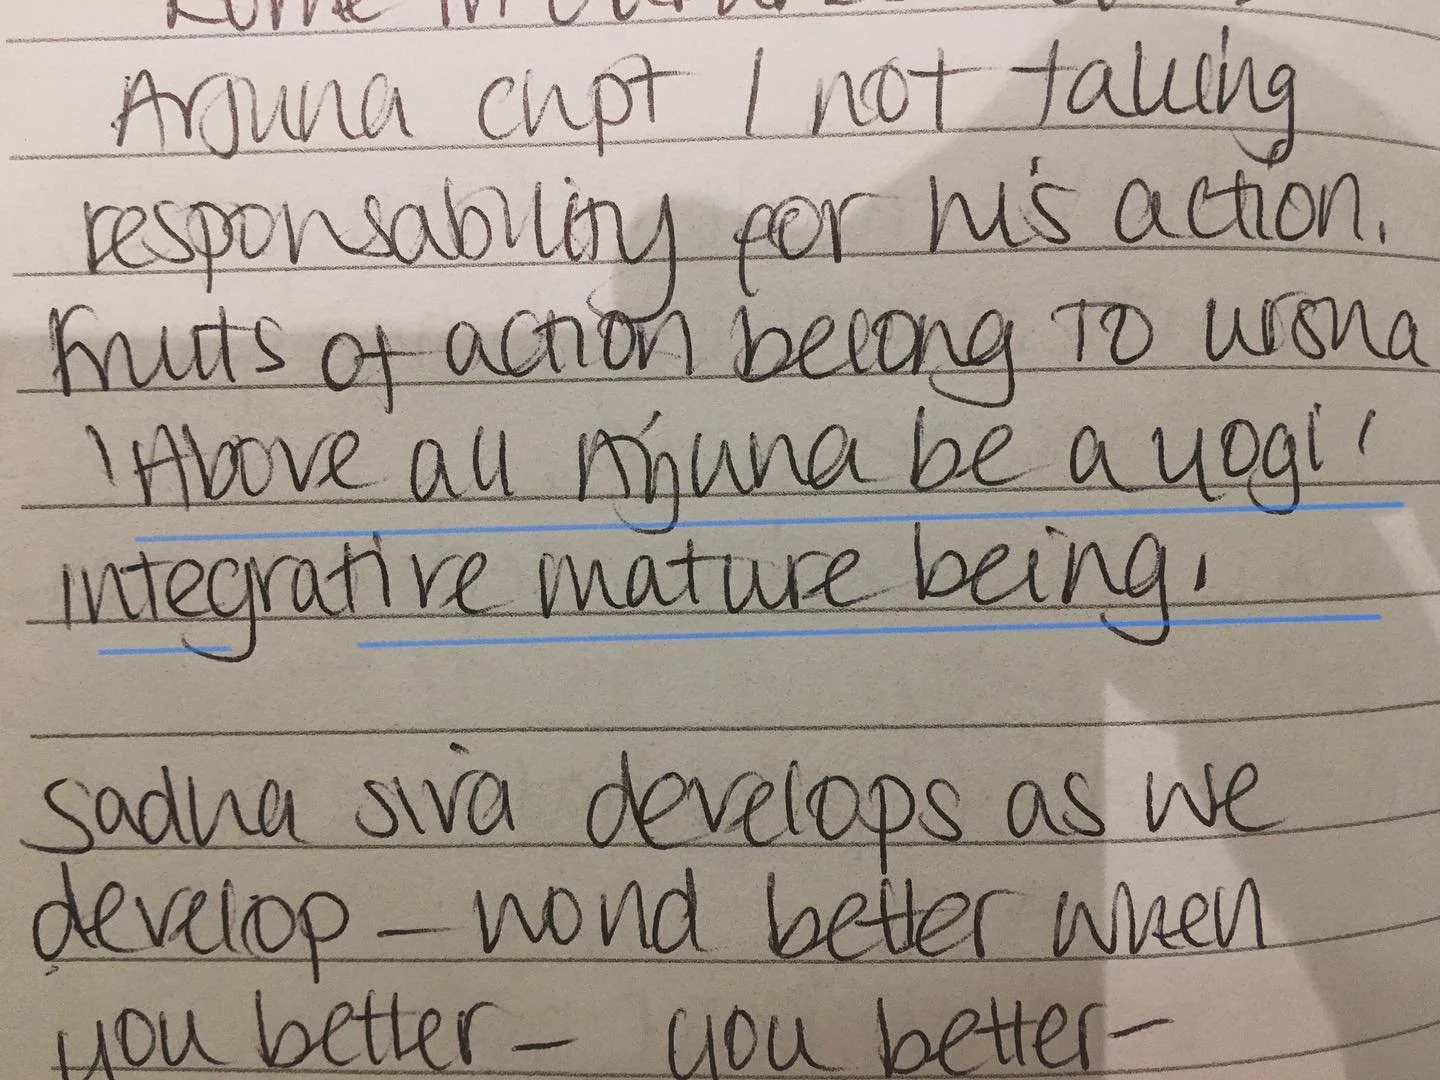 Arjuna chpt 1 not taking
responsability for his action.
Fruits of action belong to Krsna
'Above all Arjuna be a yogi'
integrative mature being.
Sadha siva develops as we
develop – world better when
you better – you better –